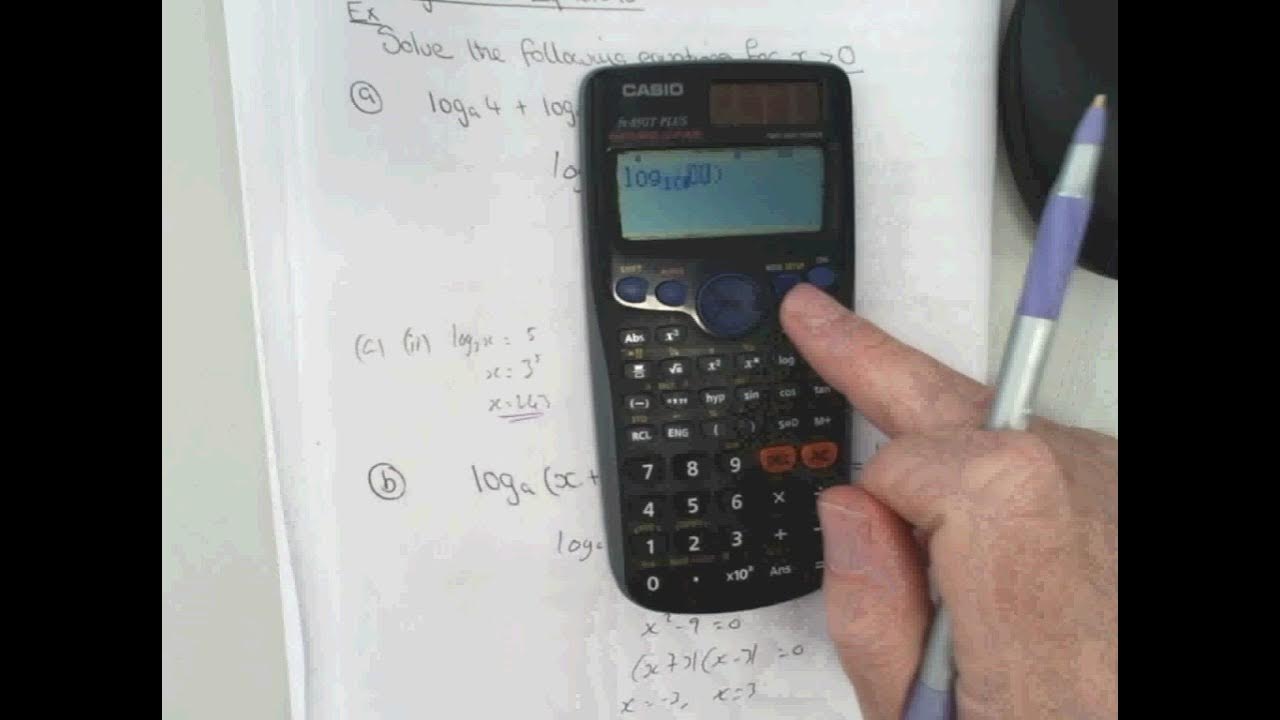 Ex
Solve the following equations for x > 0
ⓐ logₐ4 + log
lo
(c) (ii) log₃x = 5
x = 3⁵
x = 243
ⓑ logₐ(x+
logₐ
x² - 9 = 0
(x+3)(x-3) = 0
x = -3, x = 3
CASIO
fx-85GT PLUS
log
SHIFT ALPHA MODE SETUP ON
Abs x³
√ x² log
(−) °’” hyp sin cos tan
RCL ENG ( ) S⇔D M+
7 8 9 DEL AC
4 5 6 ×
1 2 3 +
0 . ×10ˣ Ans =